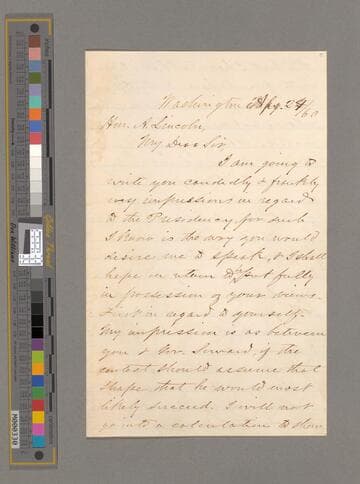 Washington Apl. 24/60
Hon. A. Lincoln,
My Dear Sir
I am going to
write you candidly & frankly
my impressions in regard
to the Presidency, for such
I know is the way you would
desire me to speak, & I shall
hope in return to be put fully
in possession of your views
in regard to yourself.
My impression is as between
you & Mr. Seward, if the
contest should assume that
shape, that he would most
likely succeed. I will not
go into a calculation to show